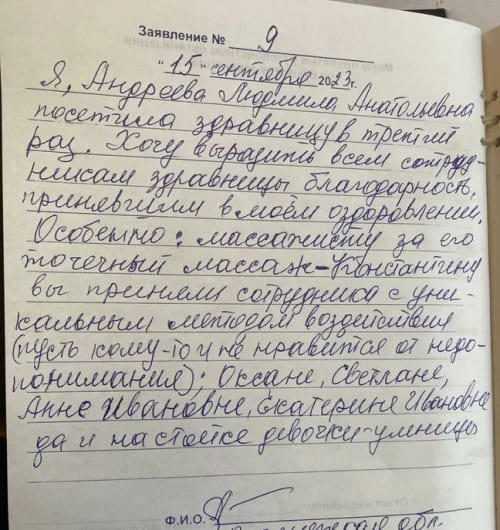 Заявление № 9
"15" сентября 2023г.
Я, Андреева Людмила Анатольевна
посетила здравницу в третий
раз. Хочу выразить всем сотруд-
никам здравницы благодарность,
принявшим в моём оздоровлении.
Особенно: массажисту за его
точечный массаж - Константину
вы приняли сотрудника с уни-
кальным методом воздействия
(пусть кому-то и не нравится от недо-
понимания); Оксане, Светлане,
Анне Ивановне, Екатерине Ивановне
да и на стойке девочки-умницы
Ф.И.О.
обл.